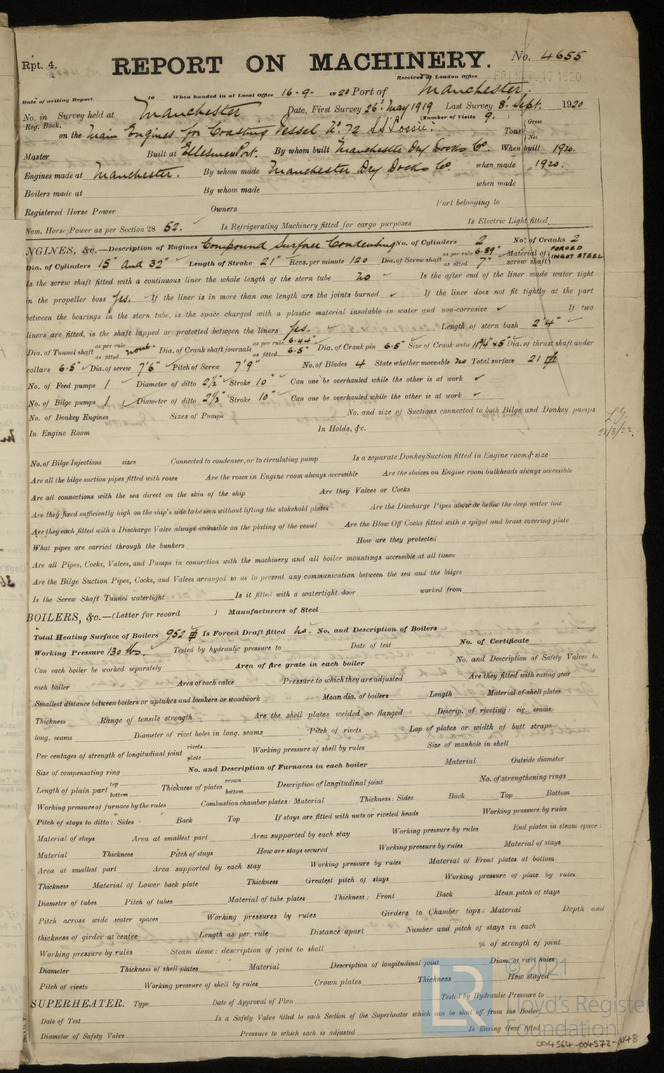 Rpt. 4.
REPORT ON MACHINERY.
No. 4655
Received at London Office
FRI. 17 1920
Date of writing Report 19 When handed in at Local Office 16.9.1920 Port of Manchester
No. in Survey held at Manchester Date, First Survey 26th May 1919 Last Survey 8. Sept. 1920
Reg. Book. (Number of Visits 9.
on the Main Engines for Coasting Vessel No. 72 S.S. Lossie. Tons Gross Net
Master Built at Ellesmere Port. By whom built Manchester Dry Docks Co. When built 1920.
Engines made at Manchester. By whom made Manchester Dry Docks Co when made 1920.
Boilers made at By whom made when made
Registered Horse Power Owners Port belonging to
Nom. Horse Power as per Section 28 52. Is Refrigerating Machinery fitted for cargo purposes Is Electric Light fitted
NGINES, &c.—Description of Engines Compound Surface Condensing No. of Cylinders 2 No. of Cranks 2
Dia. of Cylinders 15" and 32" Length of Stroke 21" Revs. per minute 120 Dia. of Screw shaft as per rule 6.89" as fitted 7" Material of screw shaft FORGED INGOT STEEL
Is the screw shaft fitted with a continuous liner the whole length of the stern tube No Is the after end of the liner made water tight
in the propeller boss Yes. If the liner is in more than one length are the joints burned ✓ If the liner does not fit tightly at the part
between the bearings in the stern tube, is the space charged with a plastic material insoluble in water and non-corrosive ✓ If two
liners are fitted, is the shaft lapped or protected between the liners Yes. Length of stern bush 2'4"
Dia. of Tunnel shaft as per rule as fitted none Dia. of Crank shaft journals as per rule 6.44" as fitted 6.5" Dia. of Crank pin 6.5" Size of Crank webs Dia. of thrust shaft under
collars 6.5" Dia. of screw 7'6" Pitch of Screw 7'9" No. of Blades 4 State whether moveable No Total surface 21
No. of Feed pumps 1 Diameter of ditto 2½" Stroke 10" Can one be overhauled while the other is at work ✓
No. of Bilge pumps 1 Diameter of ditto 2½" Stroke 10" Can one be overhauled while the other is at work ✓
No. of Donkey Engines Sizes of Pumps No. and size of Suctions connected to both Bilge and Donkey pumps
In Engine Room In Holds, &c.
No. of Bilge Injections sizes Connected to condenser, or to circulating pump Is a separate Donkey Suction fitted in Engine room & size
Are all the bilge suction pipes fitted with roses Are the roses in Engine room always accessible Are the sluices on Engine room bulkheads always accessible
Are all connections with the sea direct on the skin of the ship Are they Valves or Cocks
Are they fixed sufficiently high on the ship's side to be seen without lifting the stokehold plates Are the Discharge Pipes above or below the deep water line
Are they each fitted with a Discharge Valve always accessible on the plating of the vessel Are the Blow Off Cocks fitted with a spigot and brass covering plate
What pipes are carried through the bunkers How are they protected
Are all Pipes, Cocks, Valves, and Pumps in connection with the machinery and all boiler mountings accessible at all times
Are the Bilge Suction Pipes, Cocks, and Valves arranged so as to prevent any communication between the sea and the bilges
Is the Screw Shaft Tunnel watertight Is it fitted with a watertight door worked from
BOILERS, &c.—(Letter for record ) Manufacturers of Steel
Total Heating Surface of Boilers 952 Is Forced Draft fitted No. No. and Description of Boilers
Working Pressure 130 lbs. Tested by hydraulic pressure to Date of test No. of Certificate
Can each boiler be worked separately Area of fire grate in each boiler No. and Description of Safety Valves to
each boiler Area of each valve Pressure to which they are adjusted Are they fitted with easing gear
Smallest distance between boilers or uptakes and bunkers or woodwork Mean dia. of boilers Length Material of shell plates
Thickness Range of tensile strength Are the shell plates welded or flanged Descrip. of riveting: cir. seams
long. seams Diameter of rivet holes in long. seams Pitch of rivets Lap of plates or width of butt straps
Per centages of strength of longitudinal joint rivets plate Working pressure of shell by rules Size of manhole in shell
Size of compensating ring No. and Description of Furnaces in each boiler Material Outside diameter
Length of plain part top bottom Thickness of plates crown bottom Description of longitudinal joint No. of strengthening rings
Working pressure of furnace by the rules Combustion chamber plates: Material Thickness: Sides Back Top Bottom
Pitch of stays to ditto: Sides Back Top If stays are fitted with nuts or riveted heads Working pressure by rules
Material of stays Area at smallest part Area supported by each stay Working pressure by rules End plates in steam space:
Material Thickness Pitch of stays How are stays secured Working pressure by rules Material of stays
Area at smallest part Area supported by each stay Working pressure by rules Material of Front plates at bottom
Thickness Material of Lower back plate Thickness Greatest pitch of stays Working pressure of plate by rules
Diameter of tubes Pitch of tubes Material of tube plates Thickness: Front Back Mean pitch of stays
Pitch across wide water spaces Working pressures by rules Girders to Chamber tops: Material Depth and
thickness of girder at centre Length as per rule Distance apart Number and pitch of stays in each
Working pressure by rules Steam dome: description of joint to shell % of strength of joint
Diameter Thickness of shell plates Material Description of longitudinal joint Diam. of rivet holes
Pitch of rivets Working pressure of shell by rules Crown plates Thickness How stayed
SUPERHEATER. Type Date of Approval of Plan Tested by Hydraulic Pressure to
Date of Test Is a Safety Valve fitted to each Section of the Superheater which can be shut off from the Boiler
Diameter of Safety Valve Pressure to which each is adjusted Is Easing Gear fitted
© 2021
Lloyd's Register
Foundation
004564-004572-0048